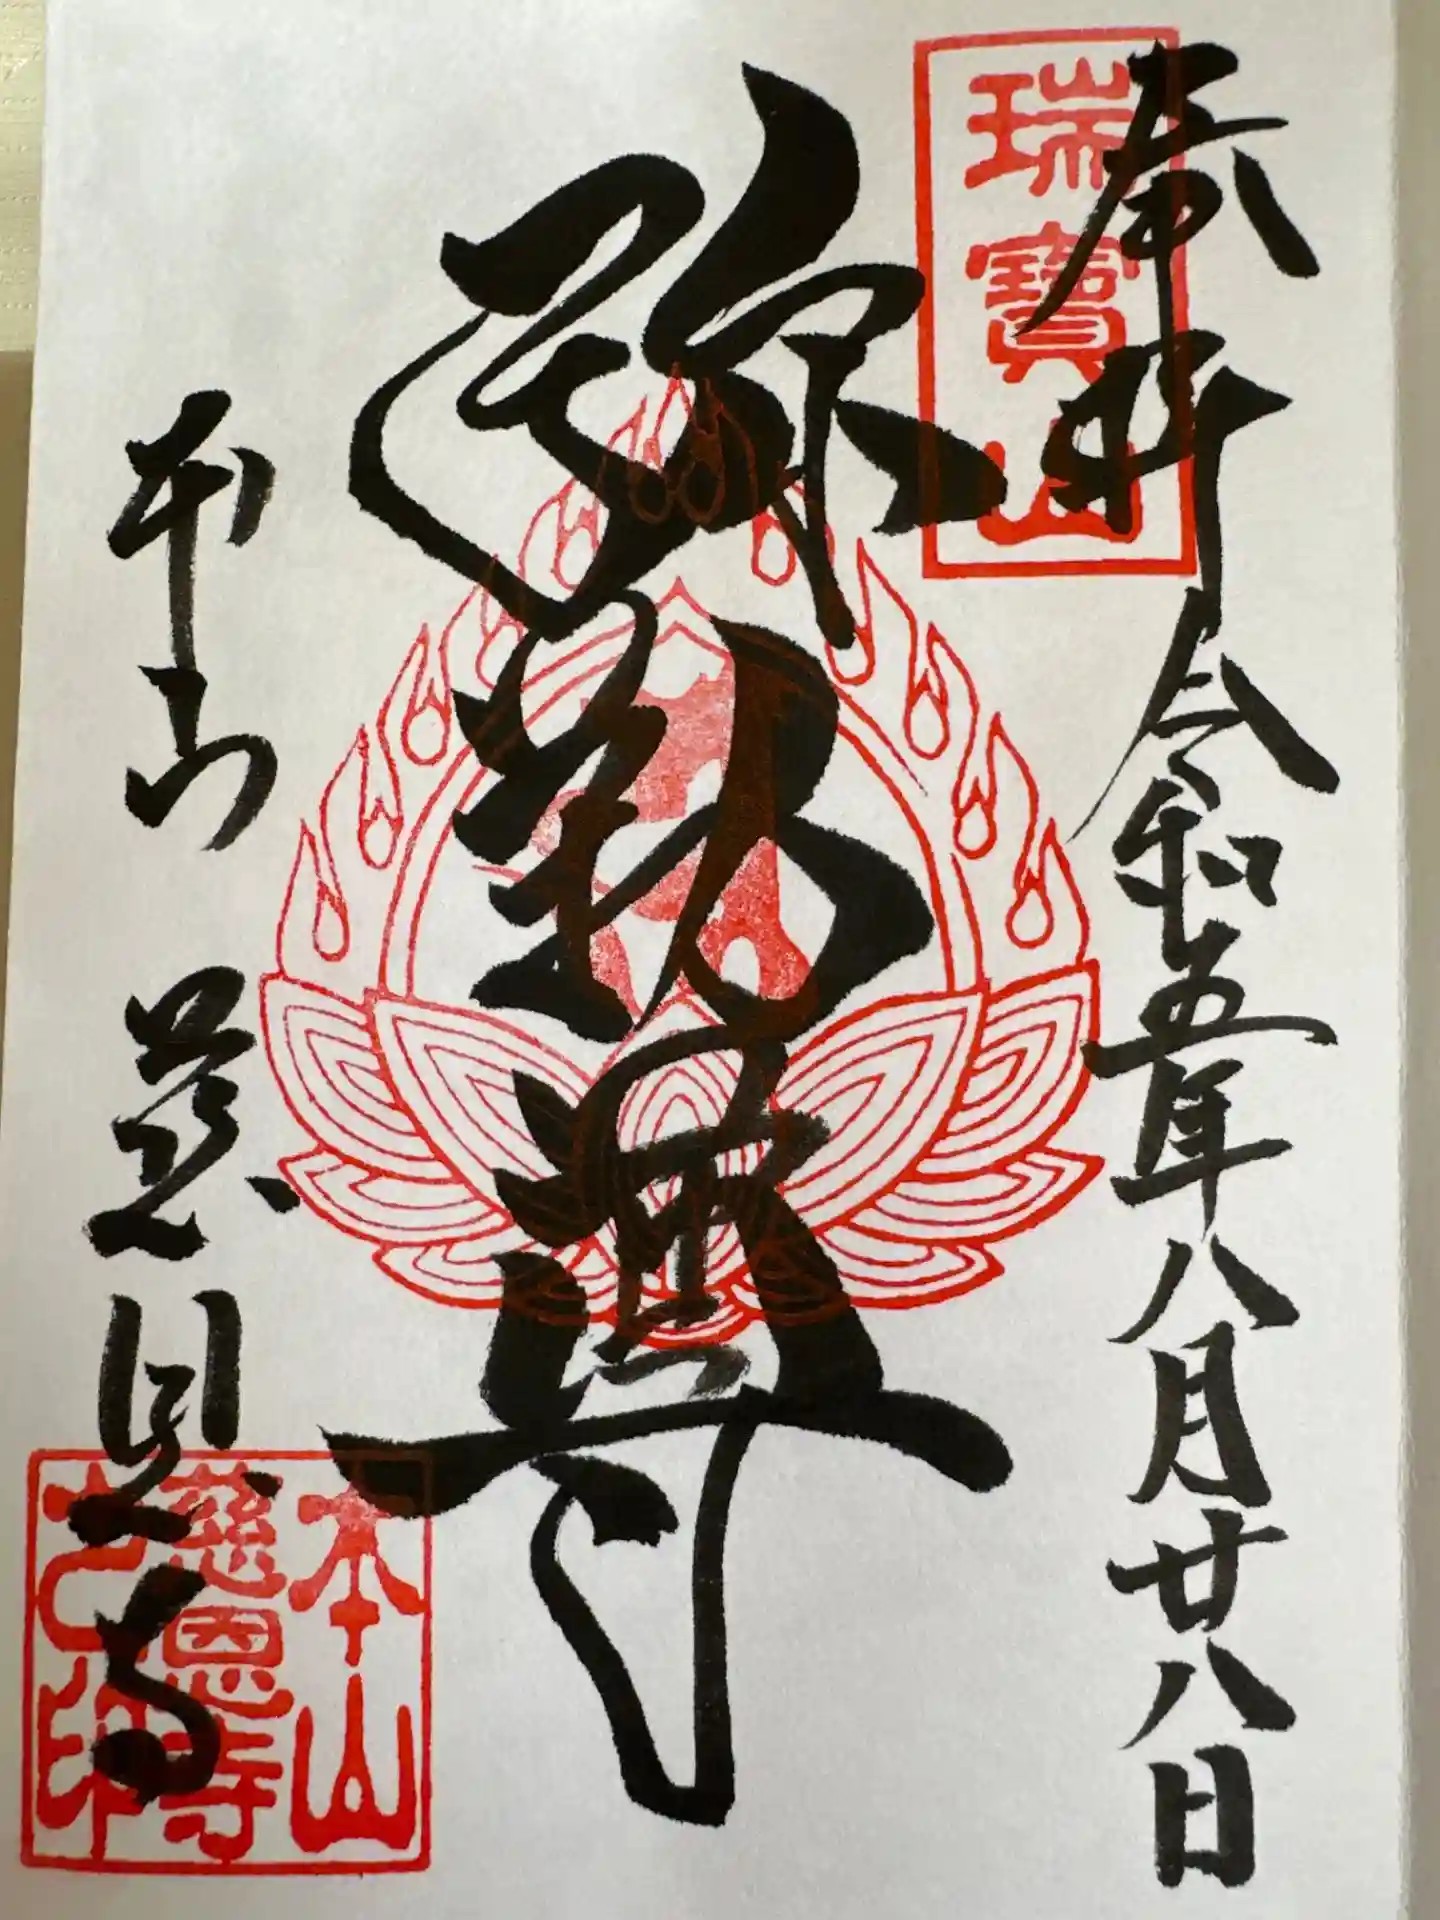 奉拝 令和五年八月廿八日
瑞寳山
弥勒尊
本山 慈恩寺
本山
慈恩寺
之印